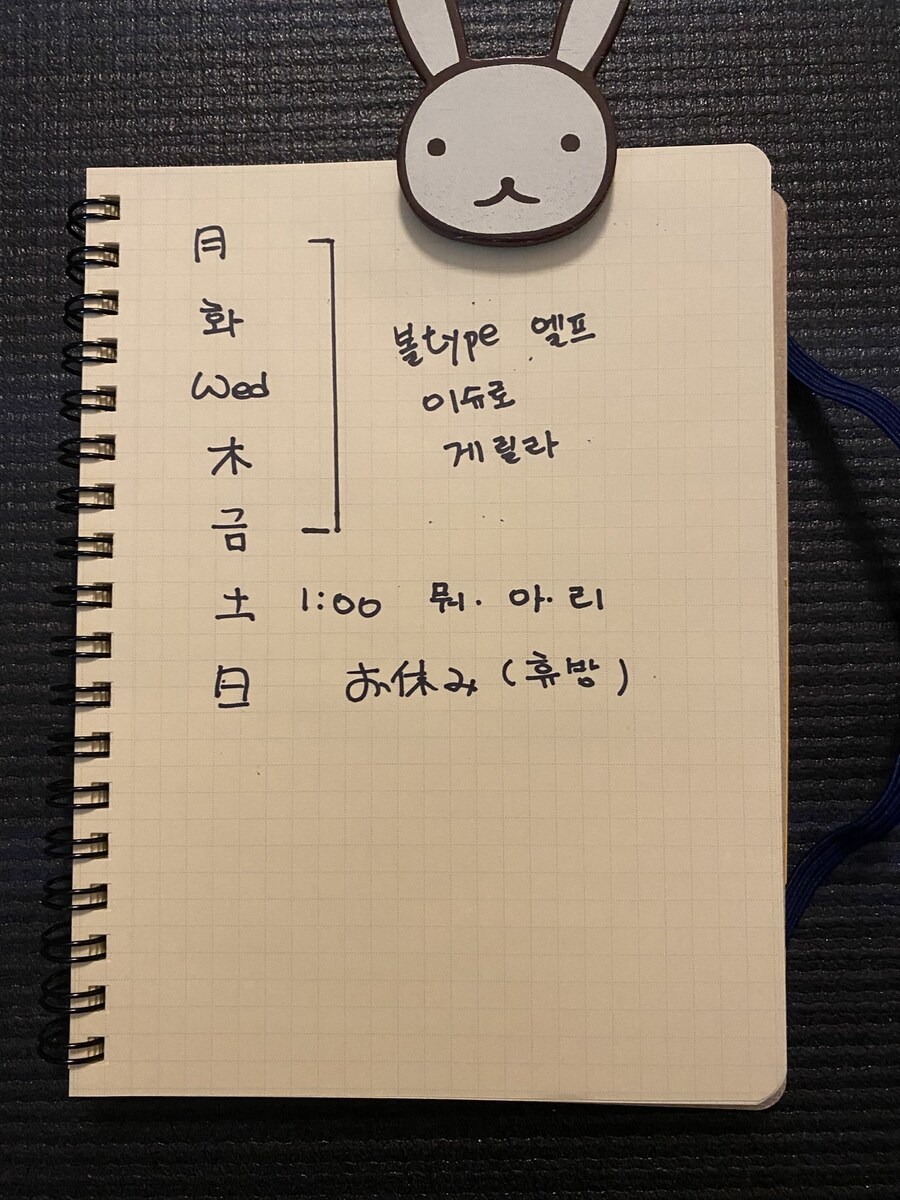 月
화
Wed
木
금
볼type 엘프
이슈로
게릴라
土 1:00 뭐.아.리
日 お休み (휴방)